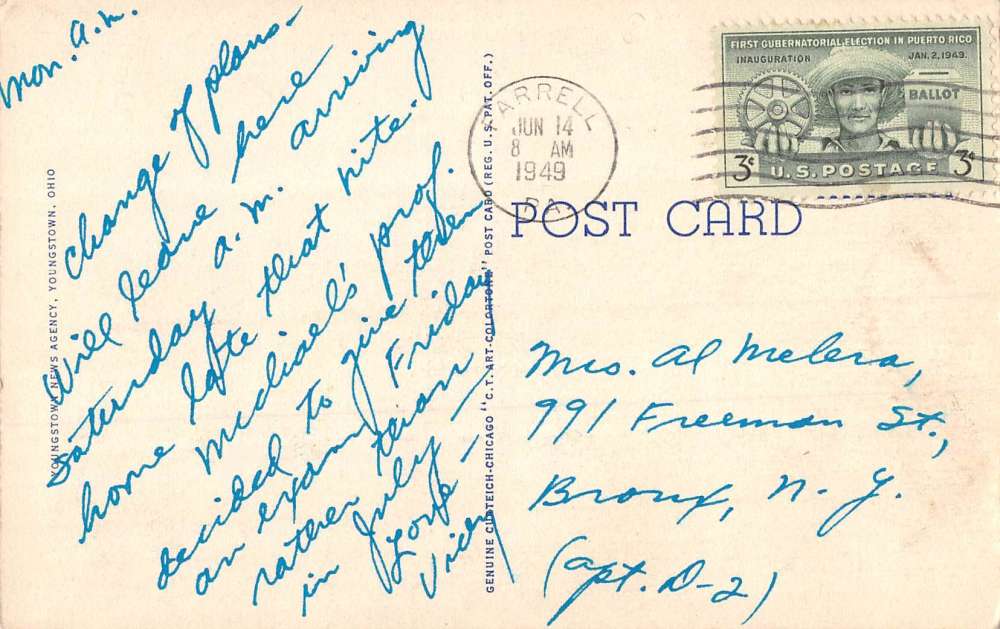 Mon. a.m.
Change of plans -
Will leave here
Saturday a.m. arriving
home late that nite.
Michael's prof.
decided to give them
an exam Friday
rather than
in July -
Love
FIRST GUBERNATORIAL ELECTION IN PUERTO RICO
INAUGURATION JAN. 2, 1949.
BALLOT
3¢ U.S. POSTAGE 3¢
FARRELL
JUN 14
8 AM
1949
PA.
POST CARD
Mrs. Al Melera,
991 Freeman St.,
Bronx, N. Y.
(apt. D-2)
YOUNGSTOWN NEWS AGENCY, YOUNGSTOWN, OHIO
GENUINE CURTEICH-CHICAGO "C.T. ART-COLORTONE" POST CARD (REG. U.S. PAT. OFF.)